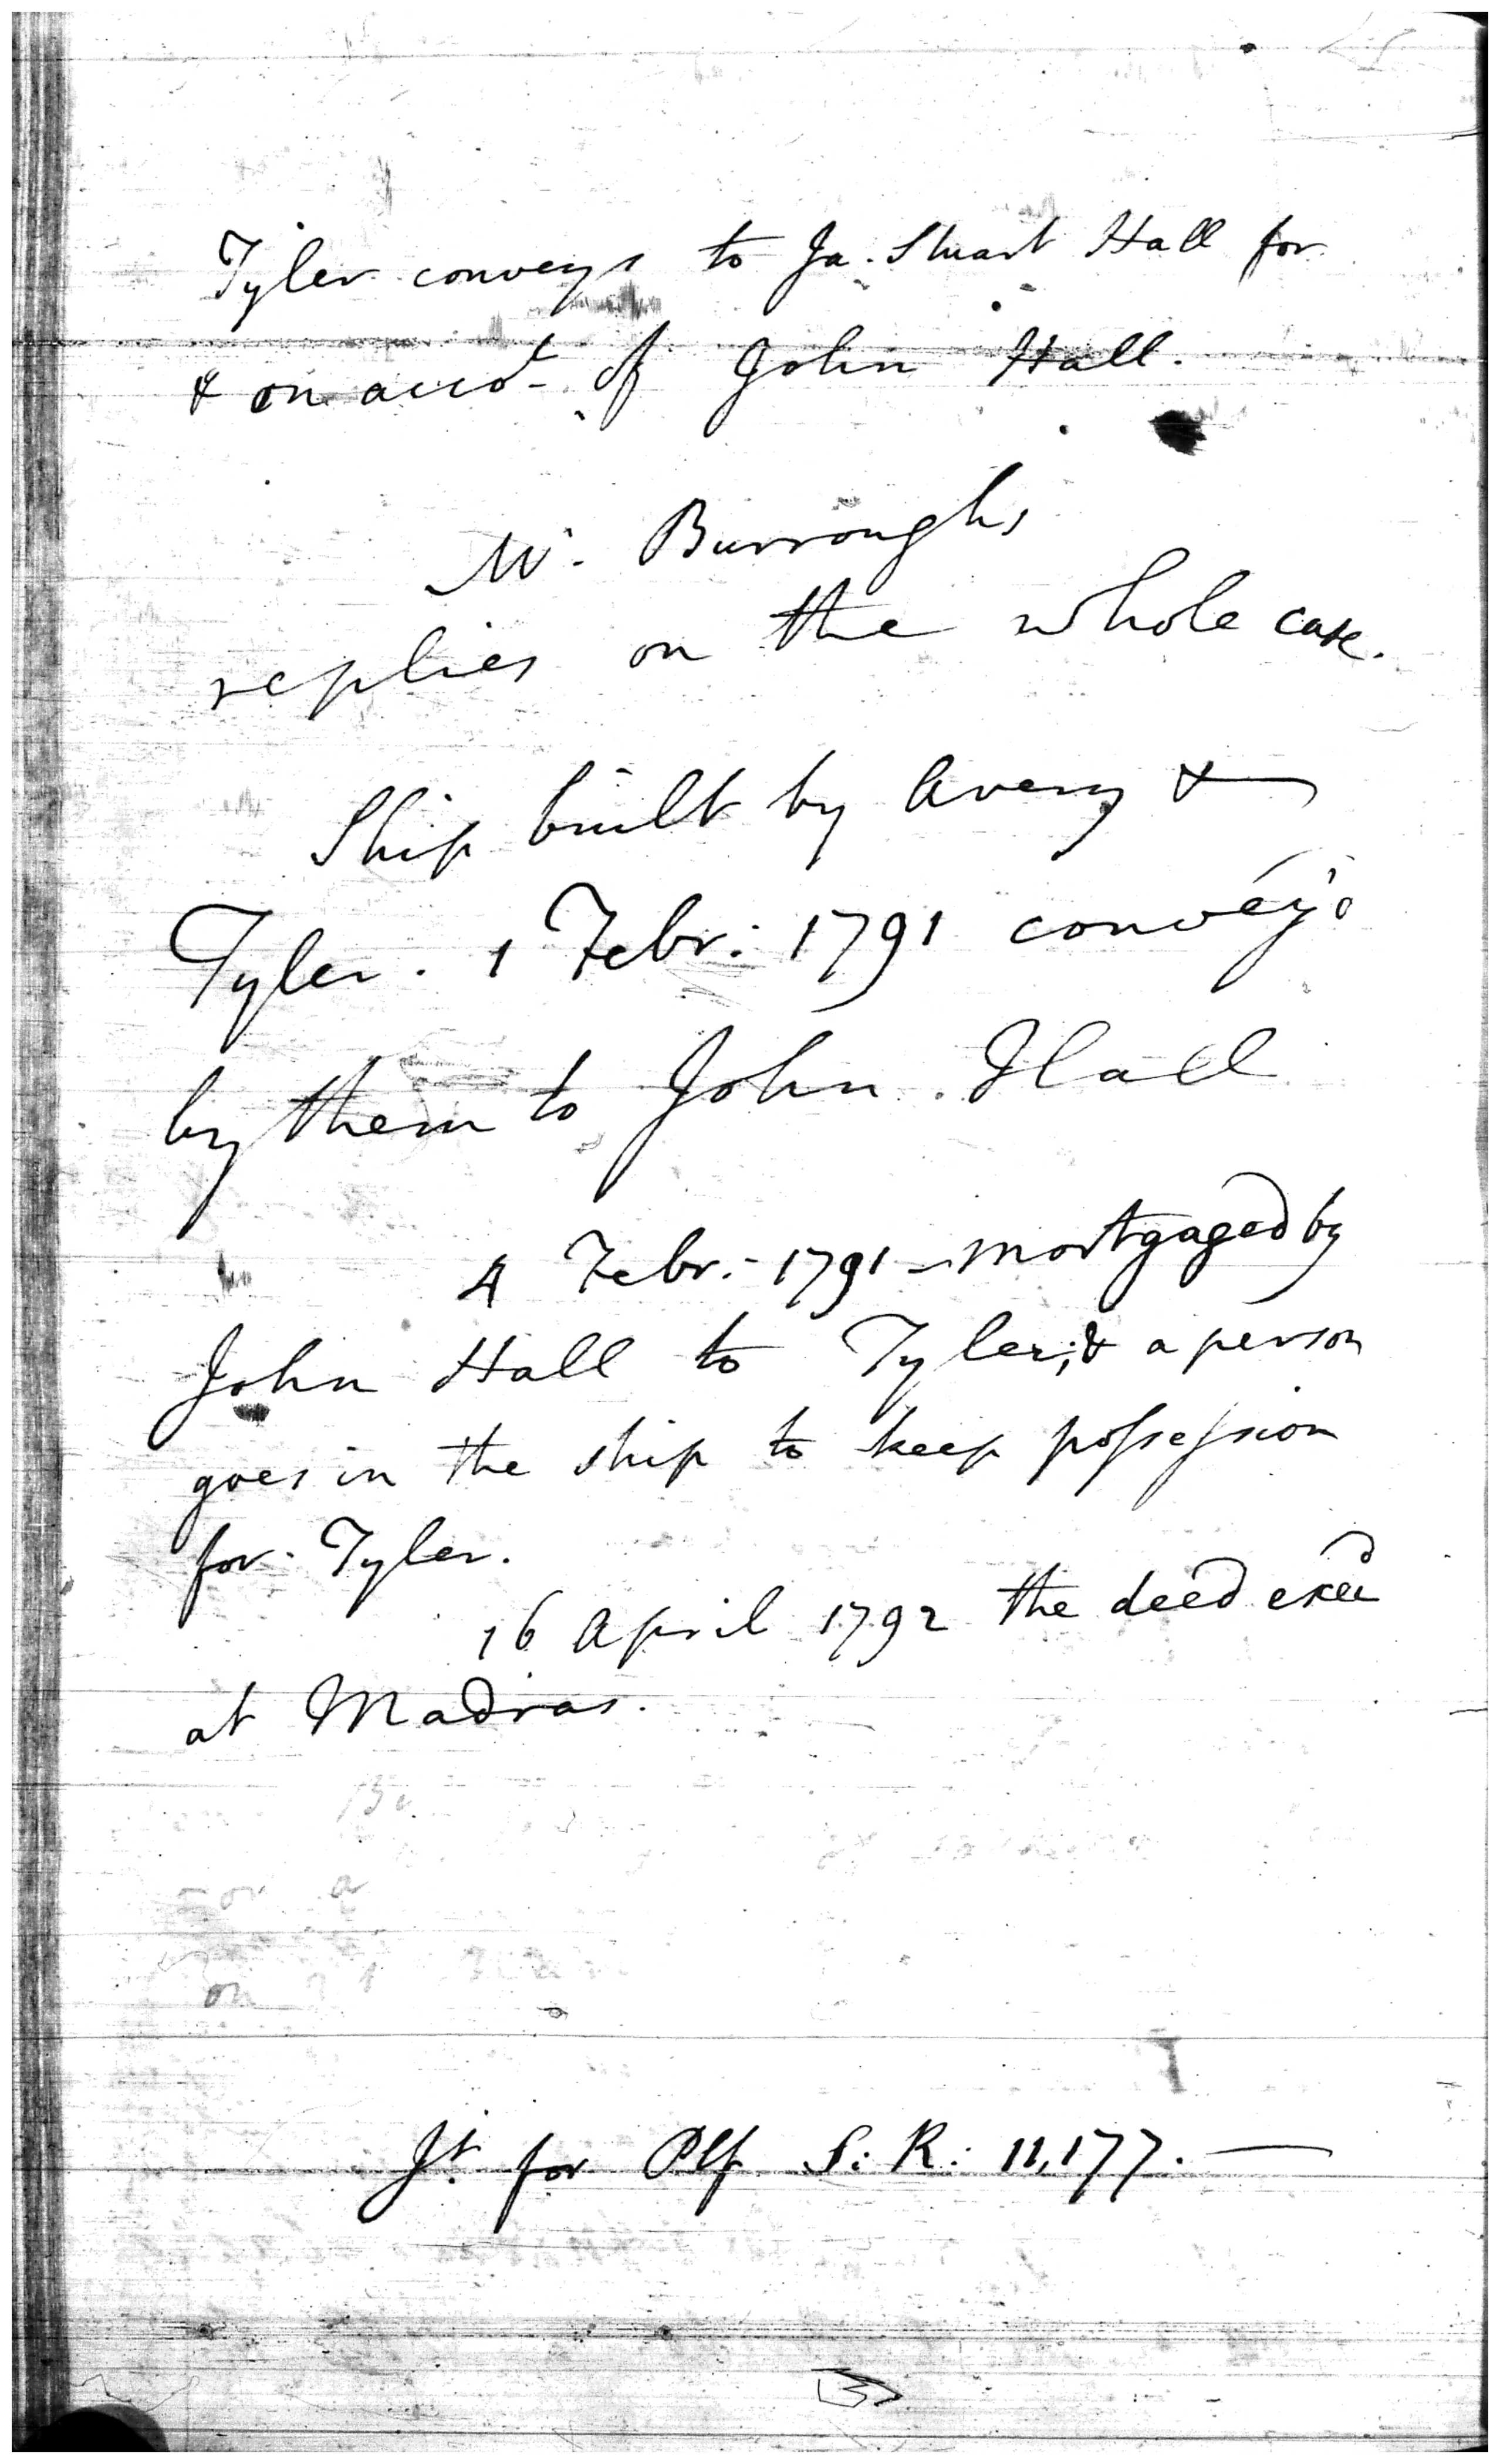 Tyler conveys to Ja. Stuart Hall for
& on accot of John Hall.
Mr. Burroughs
replies on the whole case.
Ship built by Avery &
Tyler. 1 Febr: 1791 convey'd
by them to John Hall
4 Febr: 1791 - mortgaged by
John Hall to Tyler; & a person
goes in the ship to keep possession
for Tyler.
16 April 1792 the deed exed
at Madras.
Jt. for Plf S: R: 11,177. —